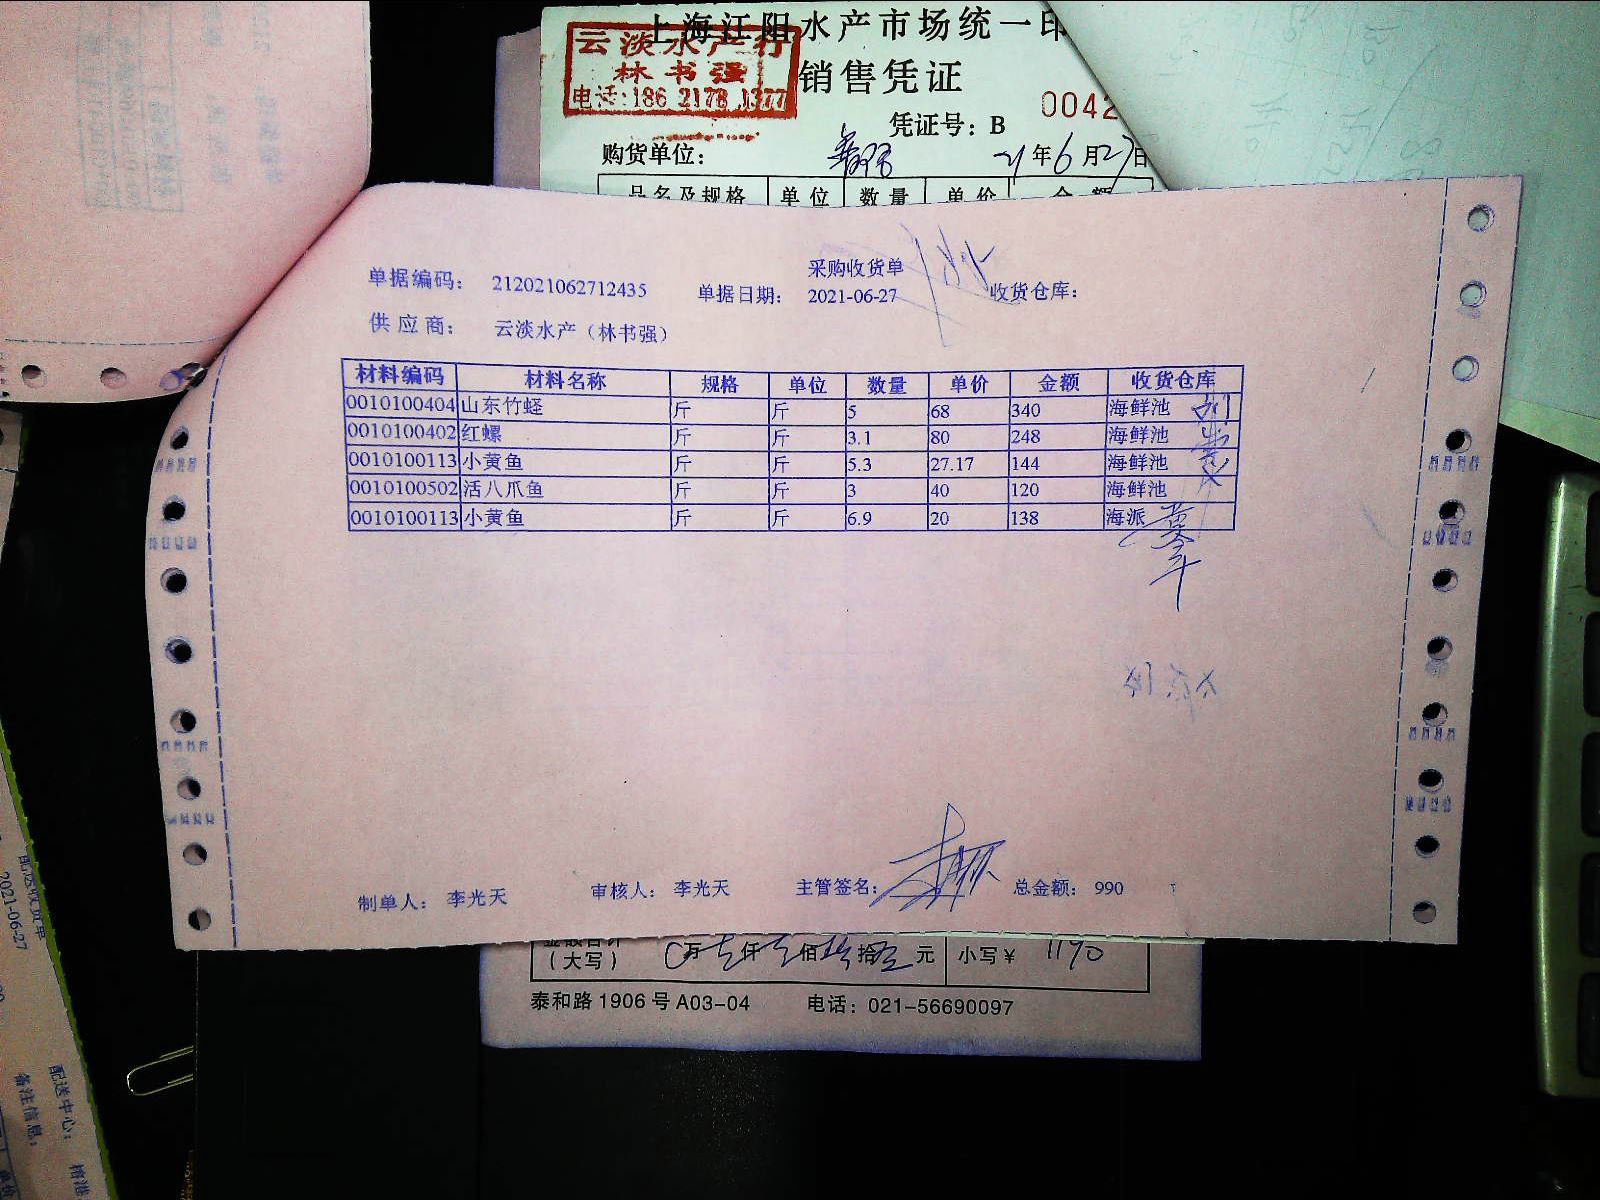 上海江阳水产市场统一印
云淡水产行
林书强
电话:186 2178 1377
销售凭证
凭证号: B 0042
购货单位:
21年6月27日
品名及规格 单位 数量 单价 金额
采购收货单
单据编码: 212021062712435 单据日期: 2021-06-27 收货仓库:
供应商: 云淡水产(林书强)
材料编码 材料名称 规格 单位 数量 单价 金额 收货仓库
0010100404 山东竹蛏 斤 斤 5 68 340 海鲜池
0010100402 红螺 斤 斤 3.1 80 248 海鲜池
0010100113 小黄鱼 斤 斤 5.3 27.17 144 海鲜池
0010100502 活八爪鱼 斤 斤 3 40 120 海鲜池
0010100113 小黄鱼 斤 斤 6.9 20 138 海派
制单人: 李光天 审核人: 李光天 主管签名: 总金额: 990
金额合计
(大写) 万 仟 佰 拾 元 小写¥ 1190
泰和路1906号A03-04 电话: 021-56690097
配送收货单
2021-06-27
配送中心:
备注信息: